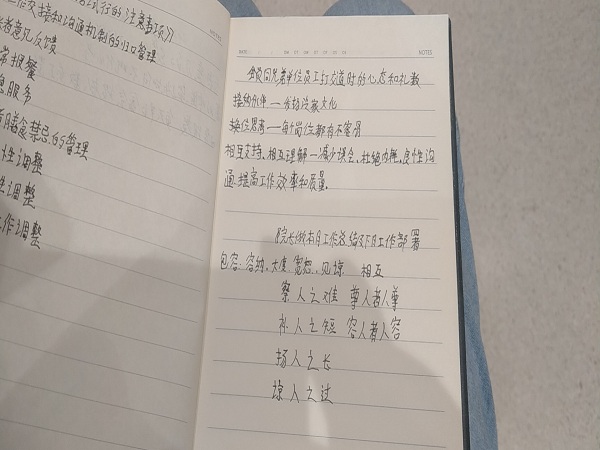 试行的注意事项》
工作交接和沟通机制的归口管理
患者意见反馈
常报餐
息服务
者膳食禁忌的管理
性调整
性调整
工作调整
NOTES
餐同兄弟单位员工打交道时的心态和礼数
接纳伙伴——发扬汉家文化
换位思考——每个岗位都有不容易
相互支持、相互理解——减少误会、杜绝内耗,良性沟
通,提高工作效率和质量.
院长做本月工作总结及下月工作部署
包容:容纳、大度、宽恕、见谅 相互
察人之难 尊人者人尊
补人之短 容人者人容
扬人之长
谅人之过